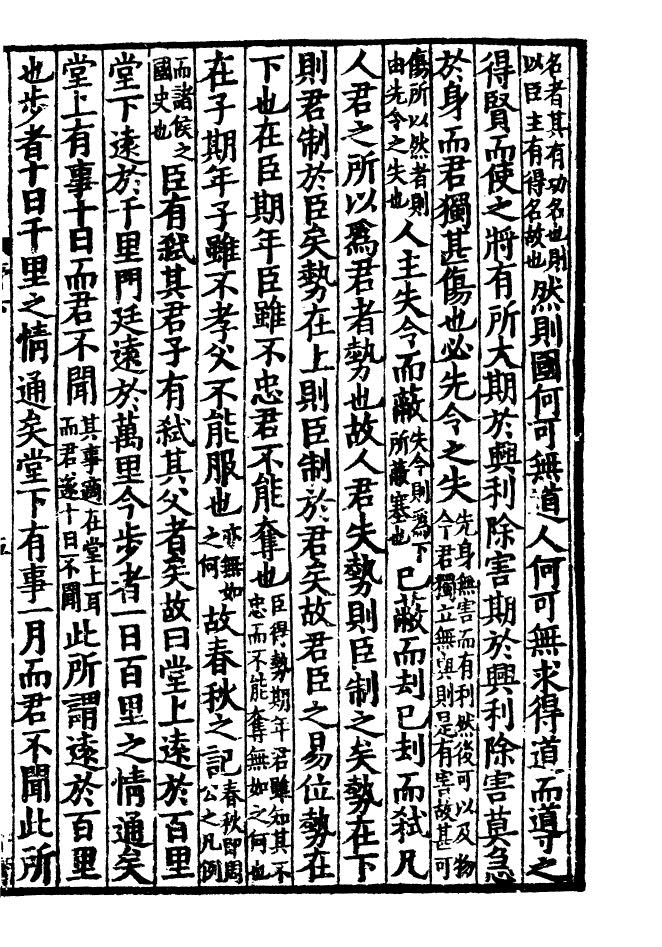 名者其有功名也則以臣主有得名故也然則國何可無道人何可無求得道而導之
得賢而使之將有所大期於興利除害期於興利除害莫急
於身而君獨甚傷也必先令之失先身無害而有利然後可以及物今君獨立無與則是有害故甚可
傷所以然者則由先令之失也人主失令而蔽失令則爲下所蔽塞也已蔽而刦已刦而弑凡
人君之所以爲君者勢也故人君失勢則臣制之矣勢在下
則君制於臣矣勢在上則臣制於君矣故君臣之易位勢在
下也在臣期年臣雖不忠君不能奪也臣得勢期年君雖知其不忠而不能奪無如之何也
在子期年子雖不孝父不能服也亦無如之何故春秋之記春秋即周公之凡例
而諸侯之國史也臣有弑其君子有弑其父者矣故曰堂上遠於百里
堂下遠於千里門廷遠於萬里今步者一日百里之情通矣
堂上有事十日而君不聞其事適在堂上耳而君遂十日不聞此所謂遠於百里
也步者十日千里之情通矣堂下有事一月而君不聞此所